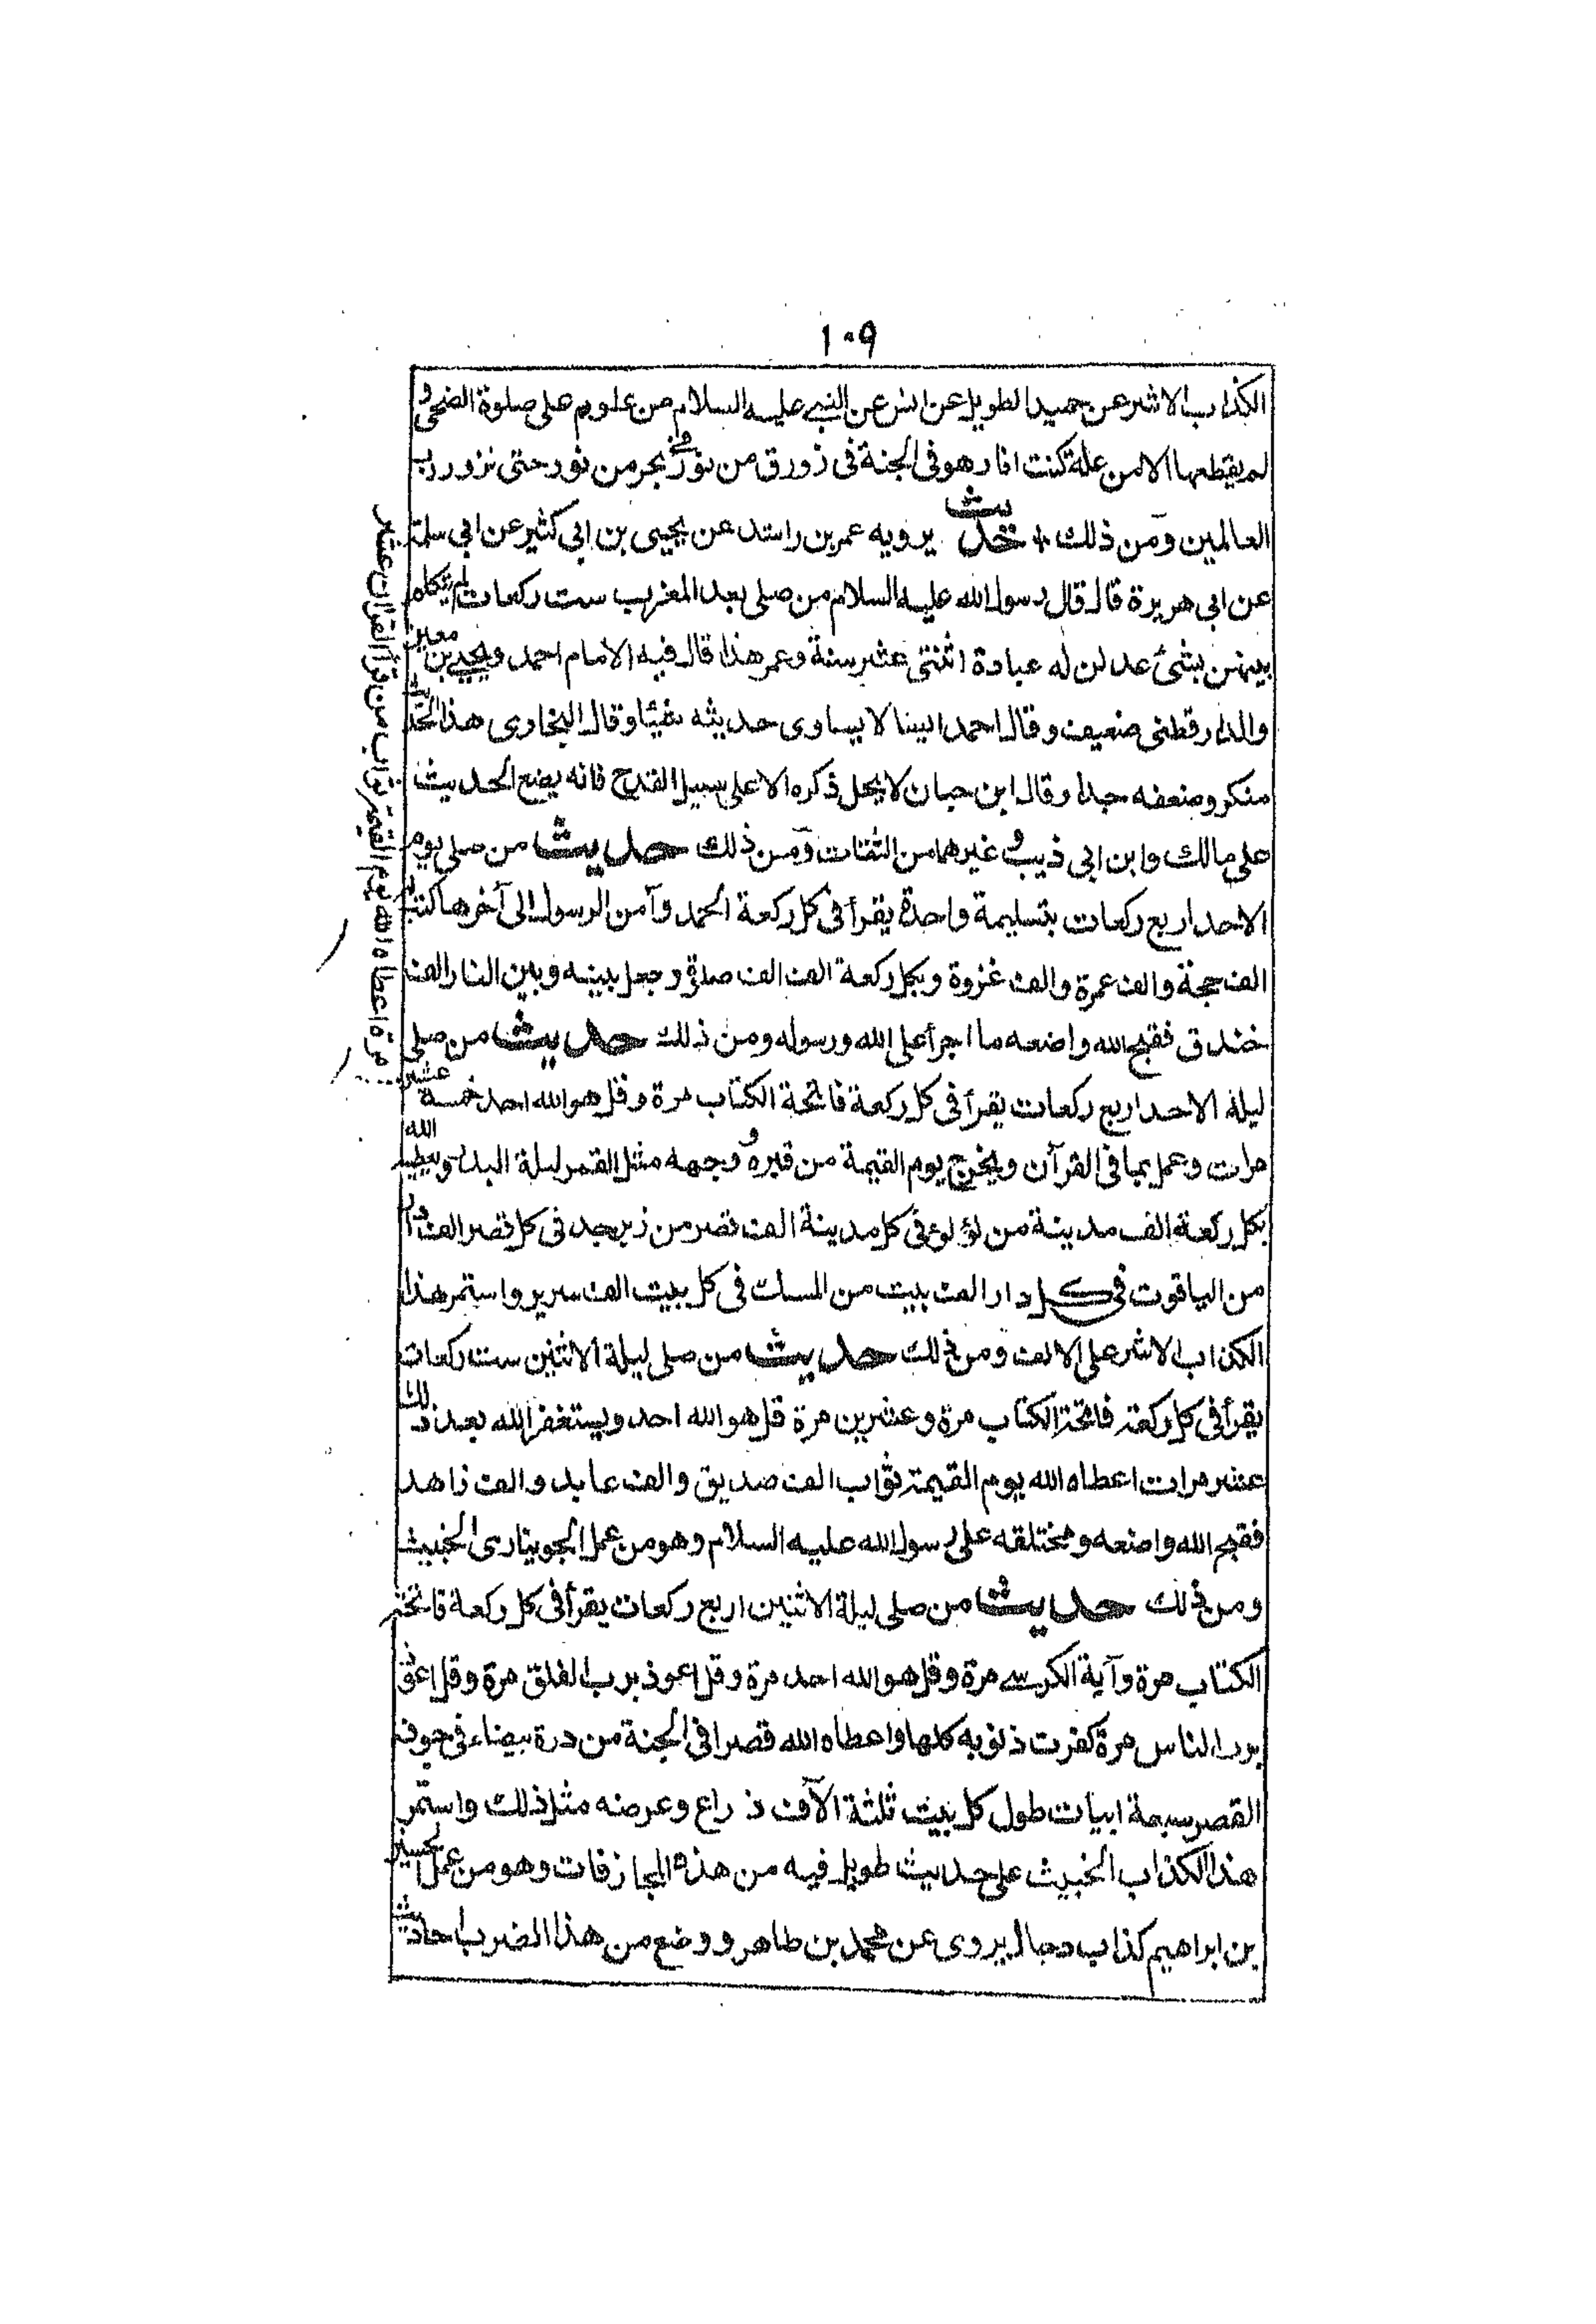 ١٠٩
الكذاب الاشر عن حميد الطويل عن انس عن النبي عليه السلام من علوم على صلوة الضحى و
لم يقطعها الا من علة كنت انا وهو فى الجنة فى زورق من نور فى بحر من نور حتى نزور رب
العالمين ومن ذلك + حديث يرويه عمر بن راشد عن يحيى بن ابى كثير عن ابى سلمة
عن ابى هريرة قال قال رسول الله عليه السلام من صلى بعد المغرب ست ركعات لم يتكلم
بينهن بشئ عدلن له عبادة اثنتى عشر سنة وعمر هذا قال فيه الامام احمد ويحيى بن معين
والدارقطنى ضعيف وقال احمد ايضا لا يساوى حديثه شيئا وقال البخارى هذا الحديث
منكر وضعفه جدا وقال ابن حبان لا يحل ذكره الا على سبيل القدح فانه يضع الحديث
على مالك وابن ابى ذيب وغيرهما من الثقات ومن ذلك حديث من صلى يوم
الاحد اربع ركعات بتسليمة واحدة يقرأ فى كل ركعة الحمد وآمن الرسول الى آخرها كتب له
الف حجة والف عمرة والف غزوة وبكل ركعة الف الف صلاة وجعل بينه وبين النار الف
خندق فقبح الله واضعه ما اجرأ على الله ورسوله ومن ذلك حديث من صلى
ليلة الاحد اربع ركعات يقرأ فى كل ركعة فاتحة الكتاب مرة وقل هو الله احد خمسة عشر
مرات وعمل بما فى القرآن ويخرج يوم القيمة من قبره و وجهه مثل القمر ليلة البدر ويعطيه الله
بكل ركعة الف مدينة من لؤلوء فى كل مدينة الف قصر من زبرجد فى كل قصر الف دار
من الياقوت فى كل دار الف بيت من المسك فى كل بيت الف سرير واستمر هذا
الكذاب الاشر على الالف ومن ذلك حديث من صلى ليلة الاثنين ست ركعات
يقرأ فى كل ركعة فاتحة الكتاب مرة وعشرين مرة قل هو الله احد ويستغفر الله بعد ذلك
عشر مرات اعطاه الله يوم القيمة ثواب الف صديق والف عابد والف زاهد
فقبح الله واضعه ومختلقه على رسول الله عليه السلام وهو من عمل الجويبارى الخبيث
ومن ذلك حديث من صلى ليلة الاثنين اربع ركعات يقرأ فى كل ركعة فاتحة
الكتاب مرة وآية الكرسى مرة وقل هو الله احد مرة وقل اعوذ برب الفلق مرة وقل اعوذ
برب الناس مرة كفرت ذنوبه كلها واعطاه الله قصرا فى الجنة من درة بيضاء فى جوف
القصر سبعة ابيات طول كل بيت ثلثة الآف ذراع وعرضه مثل ذلك واستمر
هذا الكذاب الخبيث على حديث طويل فيه من هذه المجازفات وهو من عمل الحسين
بن ابراهيم كذاب دجال يروى عن محمد بن طاهر ووضع من هذا الضرب احاديث
مرة اعطاه الله يوم القيمة ثواب من قرأ القرآن عشر